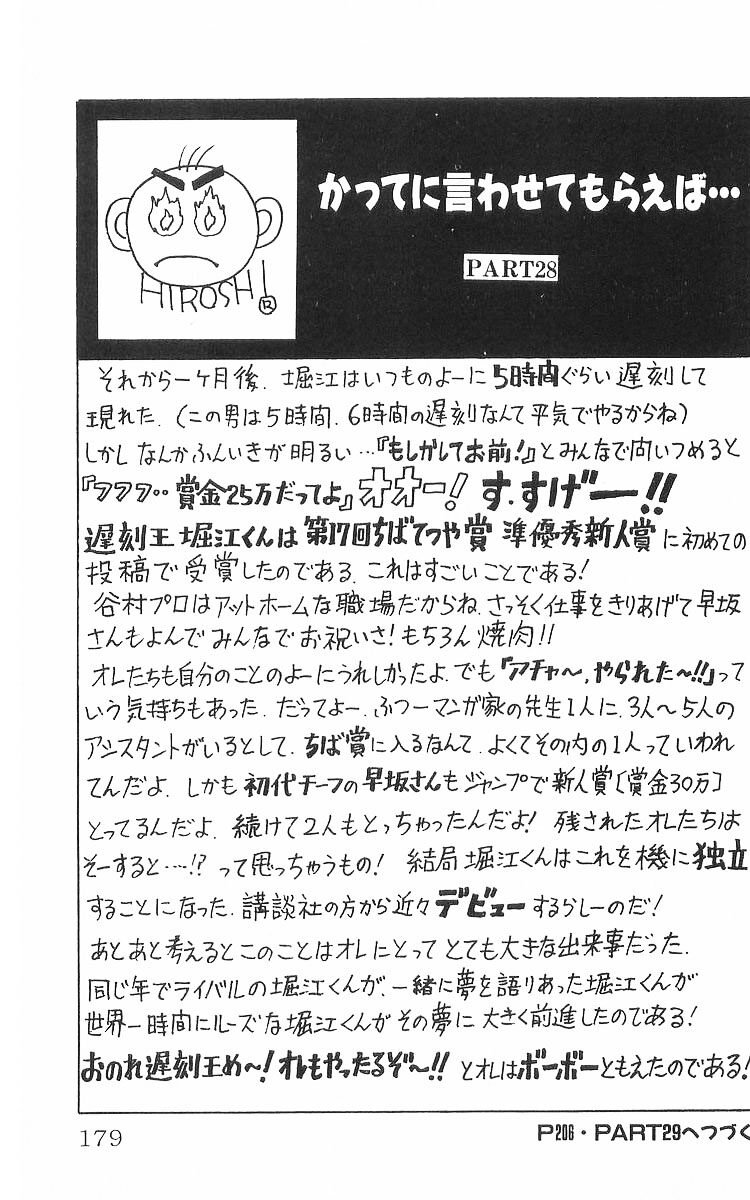 かってに言わせてもらえば…
PART28
HIROSHI
R
それから一ヶ月後、堀江はいつものよーに5時間ぐらい遅刻して
現れた。(この男は5時間、6時間の遅刻なんて平気でやるからね)
しかしなんかふんいきが明るい…『もしかしてお前!』とみんなで問いつめると
『フフフ‥賞金25万だってよ』オオー!す、すげーー!!
遅刻王堀江くんは第17回ちばてつや賞準優秀新人賞に初めての
投稿で受賞したのである。これはすごいことである!
谷村プロはアットホームな職場だからね、さっそく仕事をきりあげて早坂
さんもよんでみんなでお祝いさ!もちろん焼肉!!
オレたちも自分のことのよーにうれしかったよ、でも『アチャ〜、やられた〜!!』って
いう気持ちもあった。だってよー、ふつーマンガ家の先生1人に、3人〜5人の
アシスタントがいるとして、ちば賞に入るなんて、よくてその内の1人っていわれ
てんだよ。しかも初代チーフの早坂さんもジャンプで新人賞〔賞金30万〕
とってるんだよ。続けて2人もとっちゃったんだよ!残されたオレたちは
そーすると…!?って思っちゃうもの!結局堀江くんはこれを機に独立
することになった。講談社の方から近々デビューするらしーのだ!
あとあと考えるとこのことはオレにとってとても大きな出来事だった。
同じ年でライバルの堀江くんが、一緒に夢を語りあった堀江くんが
世界一時間にルーズな堀江くんがその夢に大きく前進したのである!
おのれ遅刻王め〜!オレもやったるぞ〜!!とオレはボーボーともえたのである!
179
P206・PART29へつづく